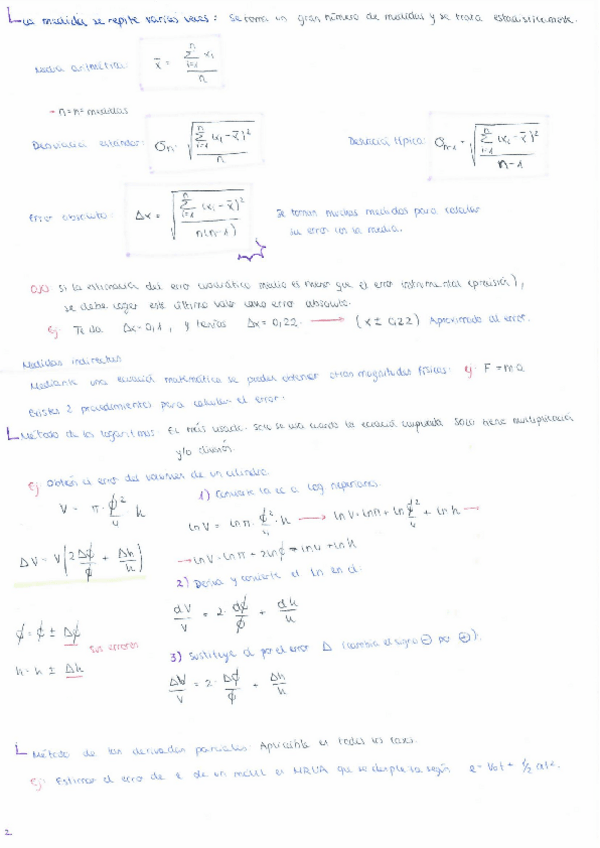 La medida se repite varias veces: Se toma un gran número de medidas y se trata estadísticamente.
Media aritmética: x̄ = ∑ᵢ₌₁ⁿ xᵢ / n
- n = nº medidas
Desviación estándar: σₙ = √(∑ᵢ₌₁ⁿ (xᵢ - x̄)² / n) Desviación típica: σₙ₋₁ = √(∑ᵢ₌₁ⁿ (xᵢ - x̄)² / n-1)
Error absoluto: Δx = √(∑ᵢ₌₁ⁿ (xᵢ - x̄)² / n(n-1)) Se toman muchas medidas para calcular
su error con la media.
Si la estimación del error cuadrático medio es menor que el error instrumental (precisión),
se debe coger este último valor como error absoluto.
Ej: Te da Δx = 0,1, y tenías Δx = 0,22 → (x ± 0,22) Aproximado al error.
Medidas indirectas
Mediante una ecuación matemática se pueden obtener otras magnitudes físicas: Ej: F = m·a
Existen 2 procedimientos para calcular el error:
Método de los logaritmos: El más usado. Solo se usa cuando la ecuación empleada solo tiene multiplicación
y/o división.
Ej: Obtén el error del volumen de un cilindro.
1) Convierte la ec. a log. neperianos.
V = π · ϕ²/4 · h
ln V = ln π · ϕ²/4 · h → ln V = ln π + ln ϕ²/4 + ln h →
→ ln V = ln π + 2 ln ϕ - ln 4 + ln h
ΔV = V (2 Δϕ/ϕ + Δh/h)
2) Deriva y convierte el ln en d.
dV/V = 2 · dϕ/ϕ + dh/h
ϕ = ϕ ± Δϕ
sus errores
h = h ± Δh
3) Sustituye d por el error Δ (cambia el signo ⊖ por ⊕).
ΔV/V = 2 · Δϕ/ϕ + Δh/h
Método de las derivadas parciales: Aplicable en todos los casos.
Ej: Estimar el error de e de un móvil en MRUA que se desplaza según e = V₀t + 1/2 at².
2